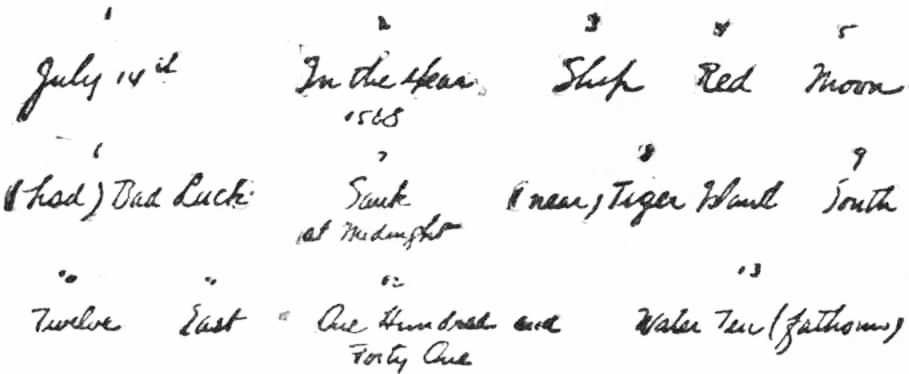 1 2 3 4 5
July 14th In the Year Ship Red Moon
1568
6 7 8 9
(had) Bad Luck Sank (near) Tiger Island South
at Midnight
10 11 12 13
Twelve East One Hundred and Water Ten (fathoms)
Forty One